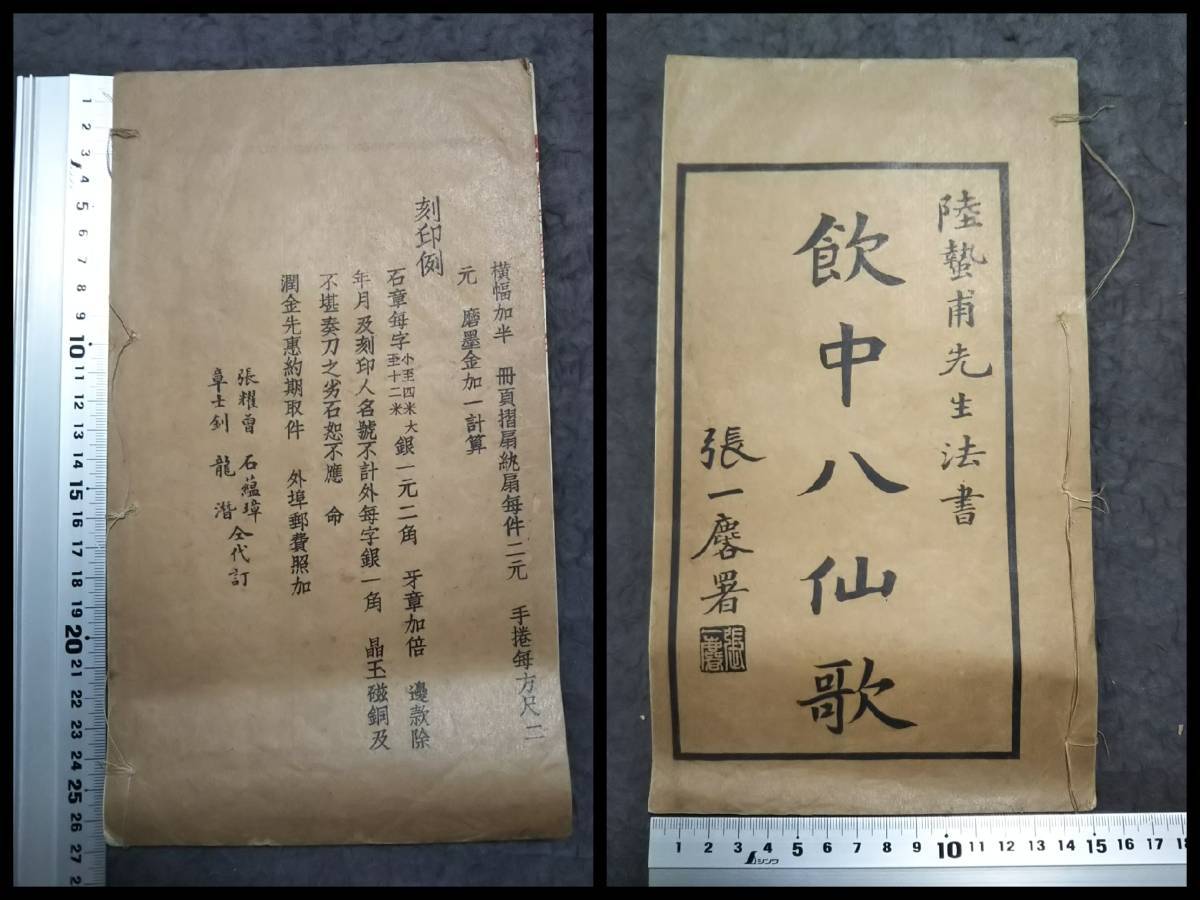 橫幅加半 冊頁摺扇紈扇每件二元 手捲每方尺二
元 磨墨金加一計算
刻印例
石章每字小至四米大至十二米銀一元二角 牙章加倍 邊款除
年月及刻印人名號不計外每字銀一角 晶玉磁銅及
不堪奏刀之劣石恕不應 命
潤金先惠約期取件 外埠郵費照加
張耀曾 石蘊瑋
章士釗 龍潛 仝代訂
1 2 3 4 5 6 7 8 9 10 11 12 13 14 15 16 17 18 19 20 21 22 23 24 25 26 27 2
陸蟄甫先生法書
飲中八仙歌
張一麐署
張一麐
1 2 3 4 5 6 7 8 9 10 11 12 13 14 15 16 17 18
シンワ